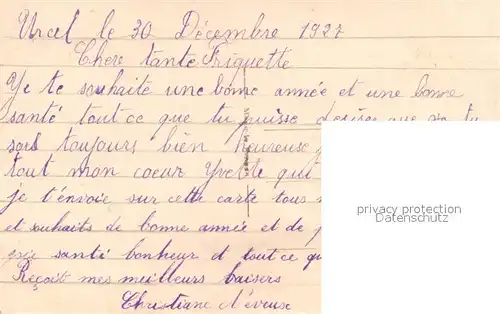 Urcel le 30 Décembre 1927
Chere tante Friquette
Je te souhaite une bonne année et une bonne
santé tout ce que tu puisse desirer que
sois toujours bien heureuse
tout mon coeur Yvette qui
je t'envoie sur cette carte tous
et souhaits de bonne année et de
santé bonheur et tout ce
Reçoit mes meilleurs baisers
Christiane
privacy protection
Datenschutz